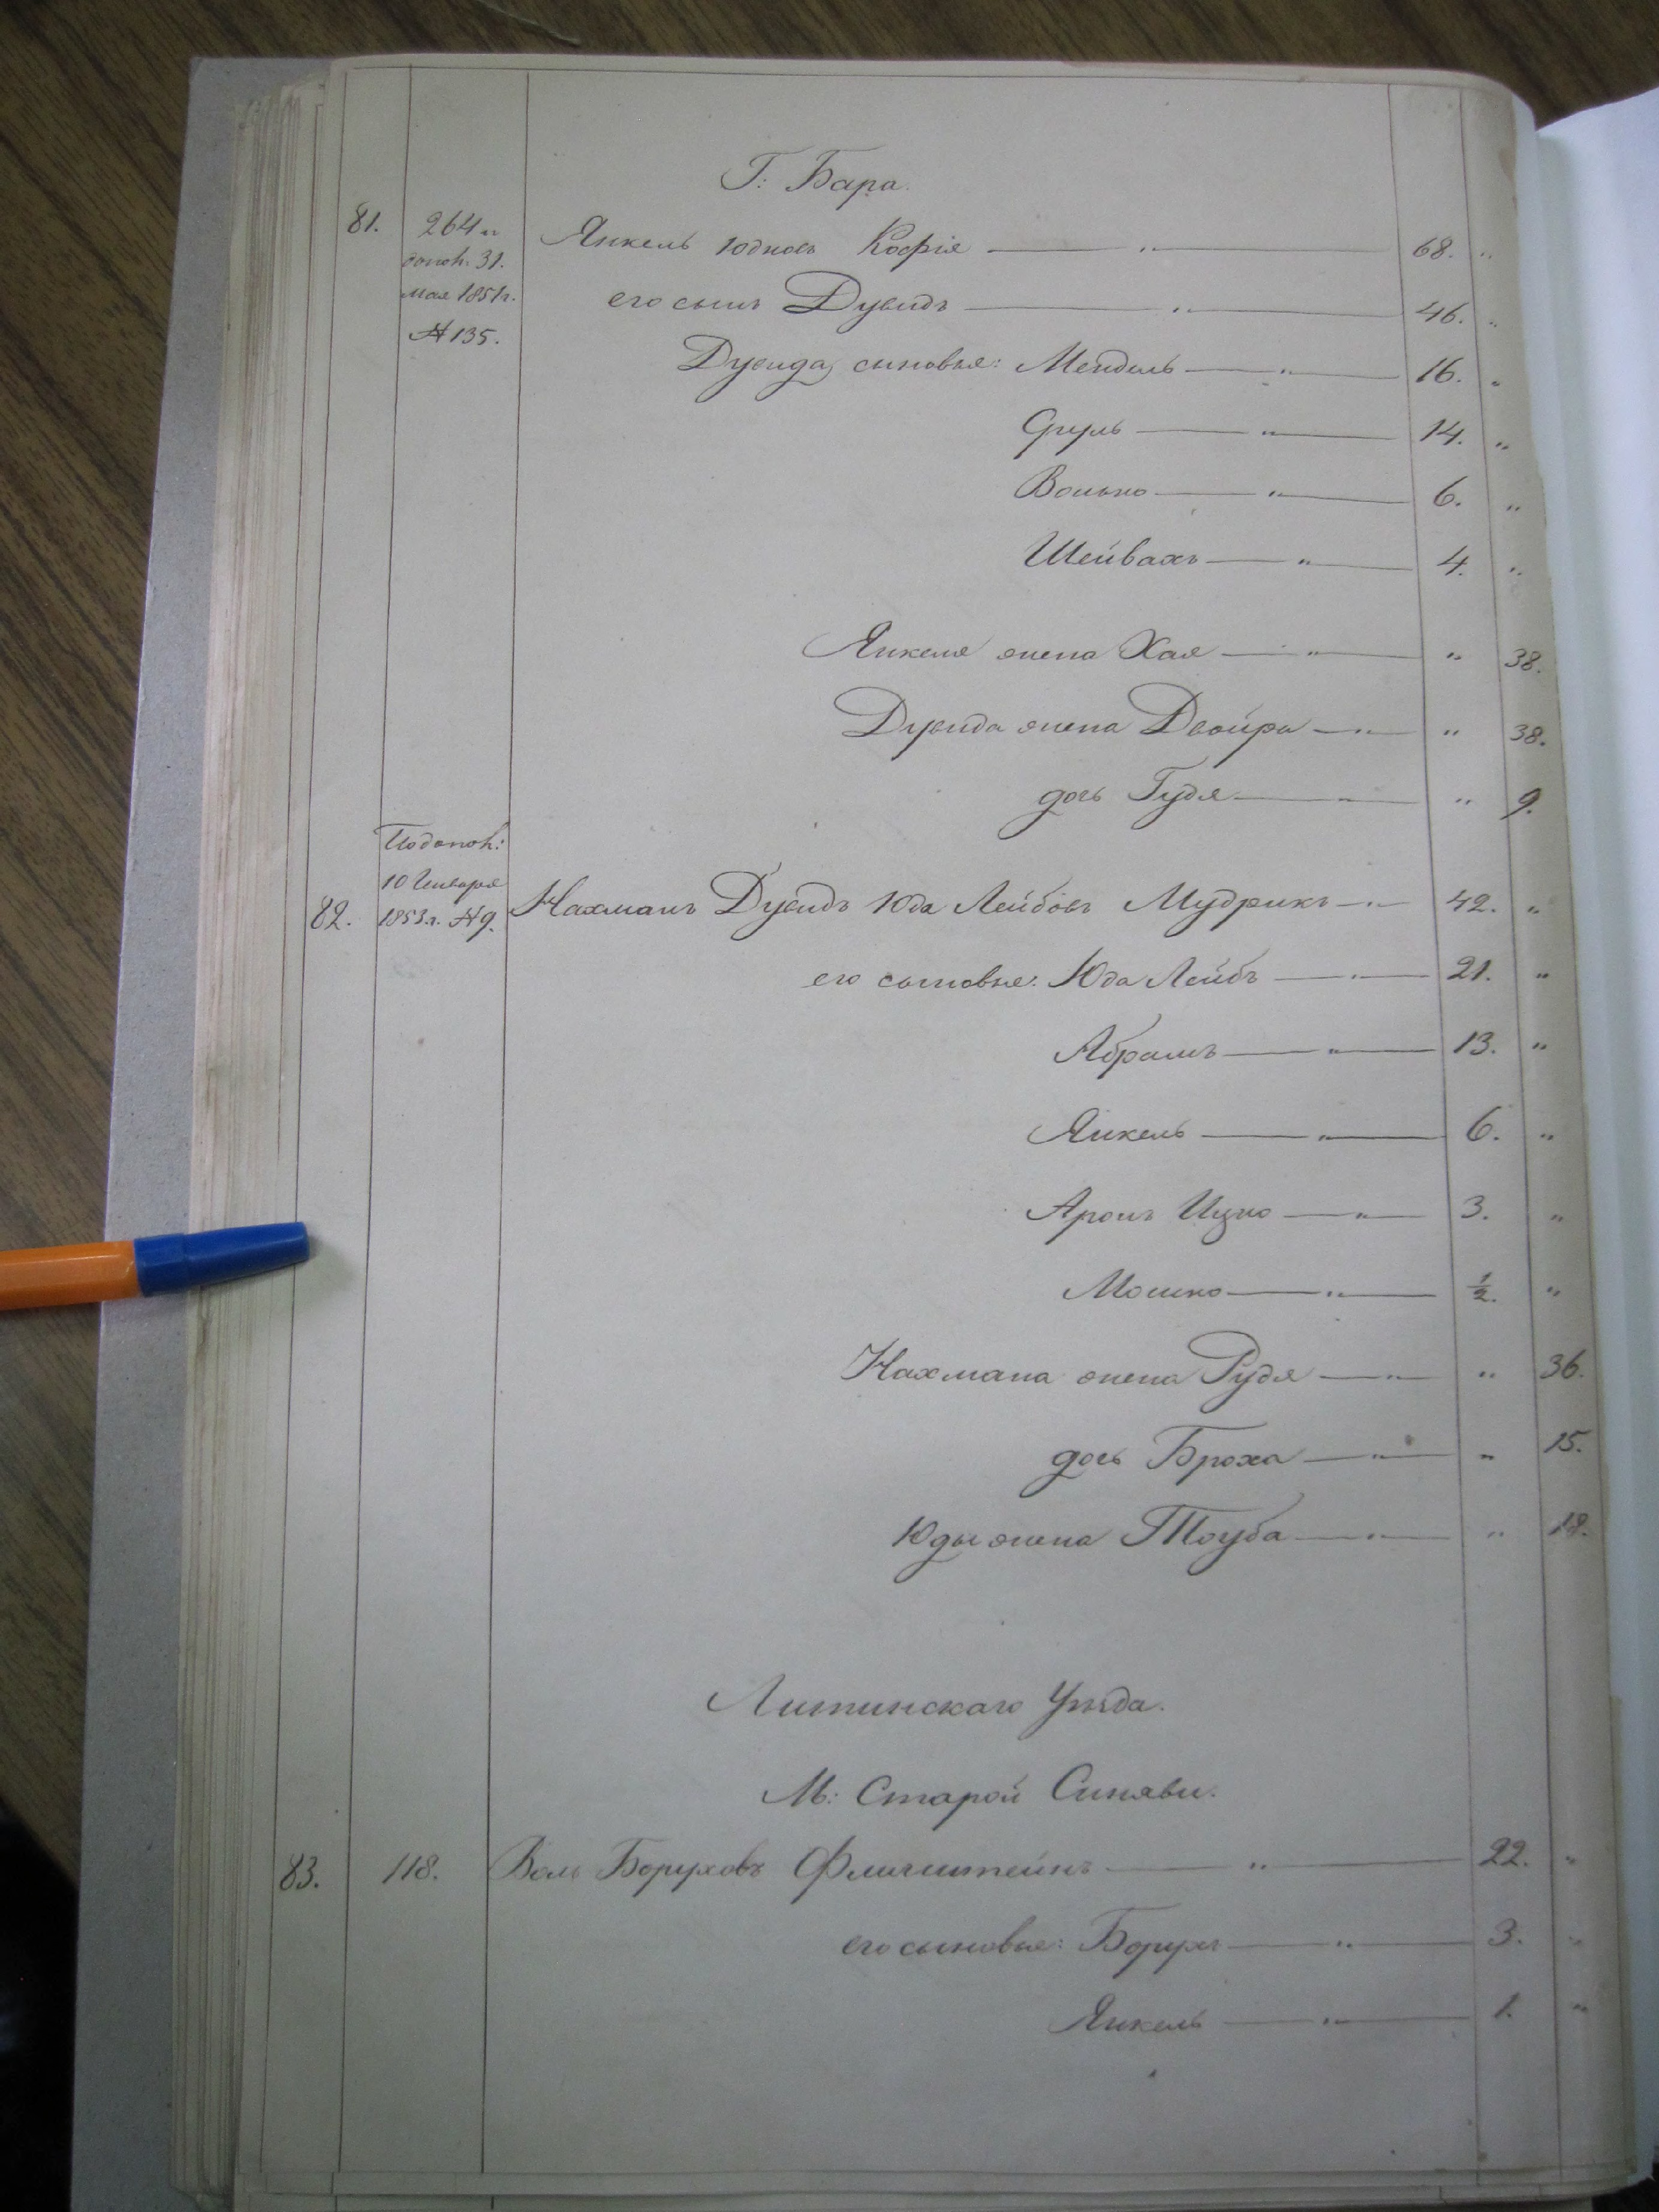 Г: Бара.
81. 264 и Янкель Юдковъ Кофія — " — 68. "
допол. 31. мая 1851 г. №135.
его сынъ Дувидъ — " — 46. "
Дувида сыновья: Мендель — " — 16. "
Сруль — " — 14. "
Волько — " — 6. "
Шейвахъ — " — 4. "
Янкеля жена Хая — " — " 38.
Дувида жена Двойра — " — " 38.
дочь Гудя — " — " 9.
По допол:
10 Января
82. 1853 г. №9. Нахманъ Дувидъ Юда Лейбовъ Мудрикъ — " — 42. "
его сыновья: Юда Лейбъ — " — 21. "
Абрамъ — " — 13. "
Янкель — " — 6. "
Аронъ Ицко — " — 3. "
Мошко — " — 1/2. "
Нахмана жена Рудя — " — " 36.
дочь Броха — " — " 15.
Юды жена Тоуба — " — " 18.
Литинскаго Уѣзда.
М: Старой Синяви.
83. 118. Воль Боруховъ — " — 22. "
его сыновья: Борухъ — " — 3. "
Янкель — " — 1. "